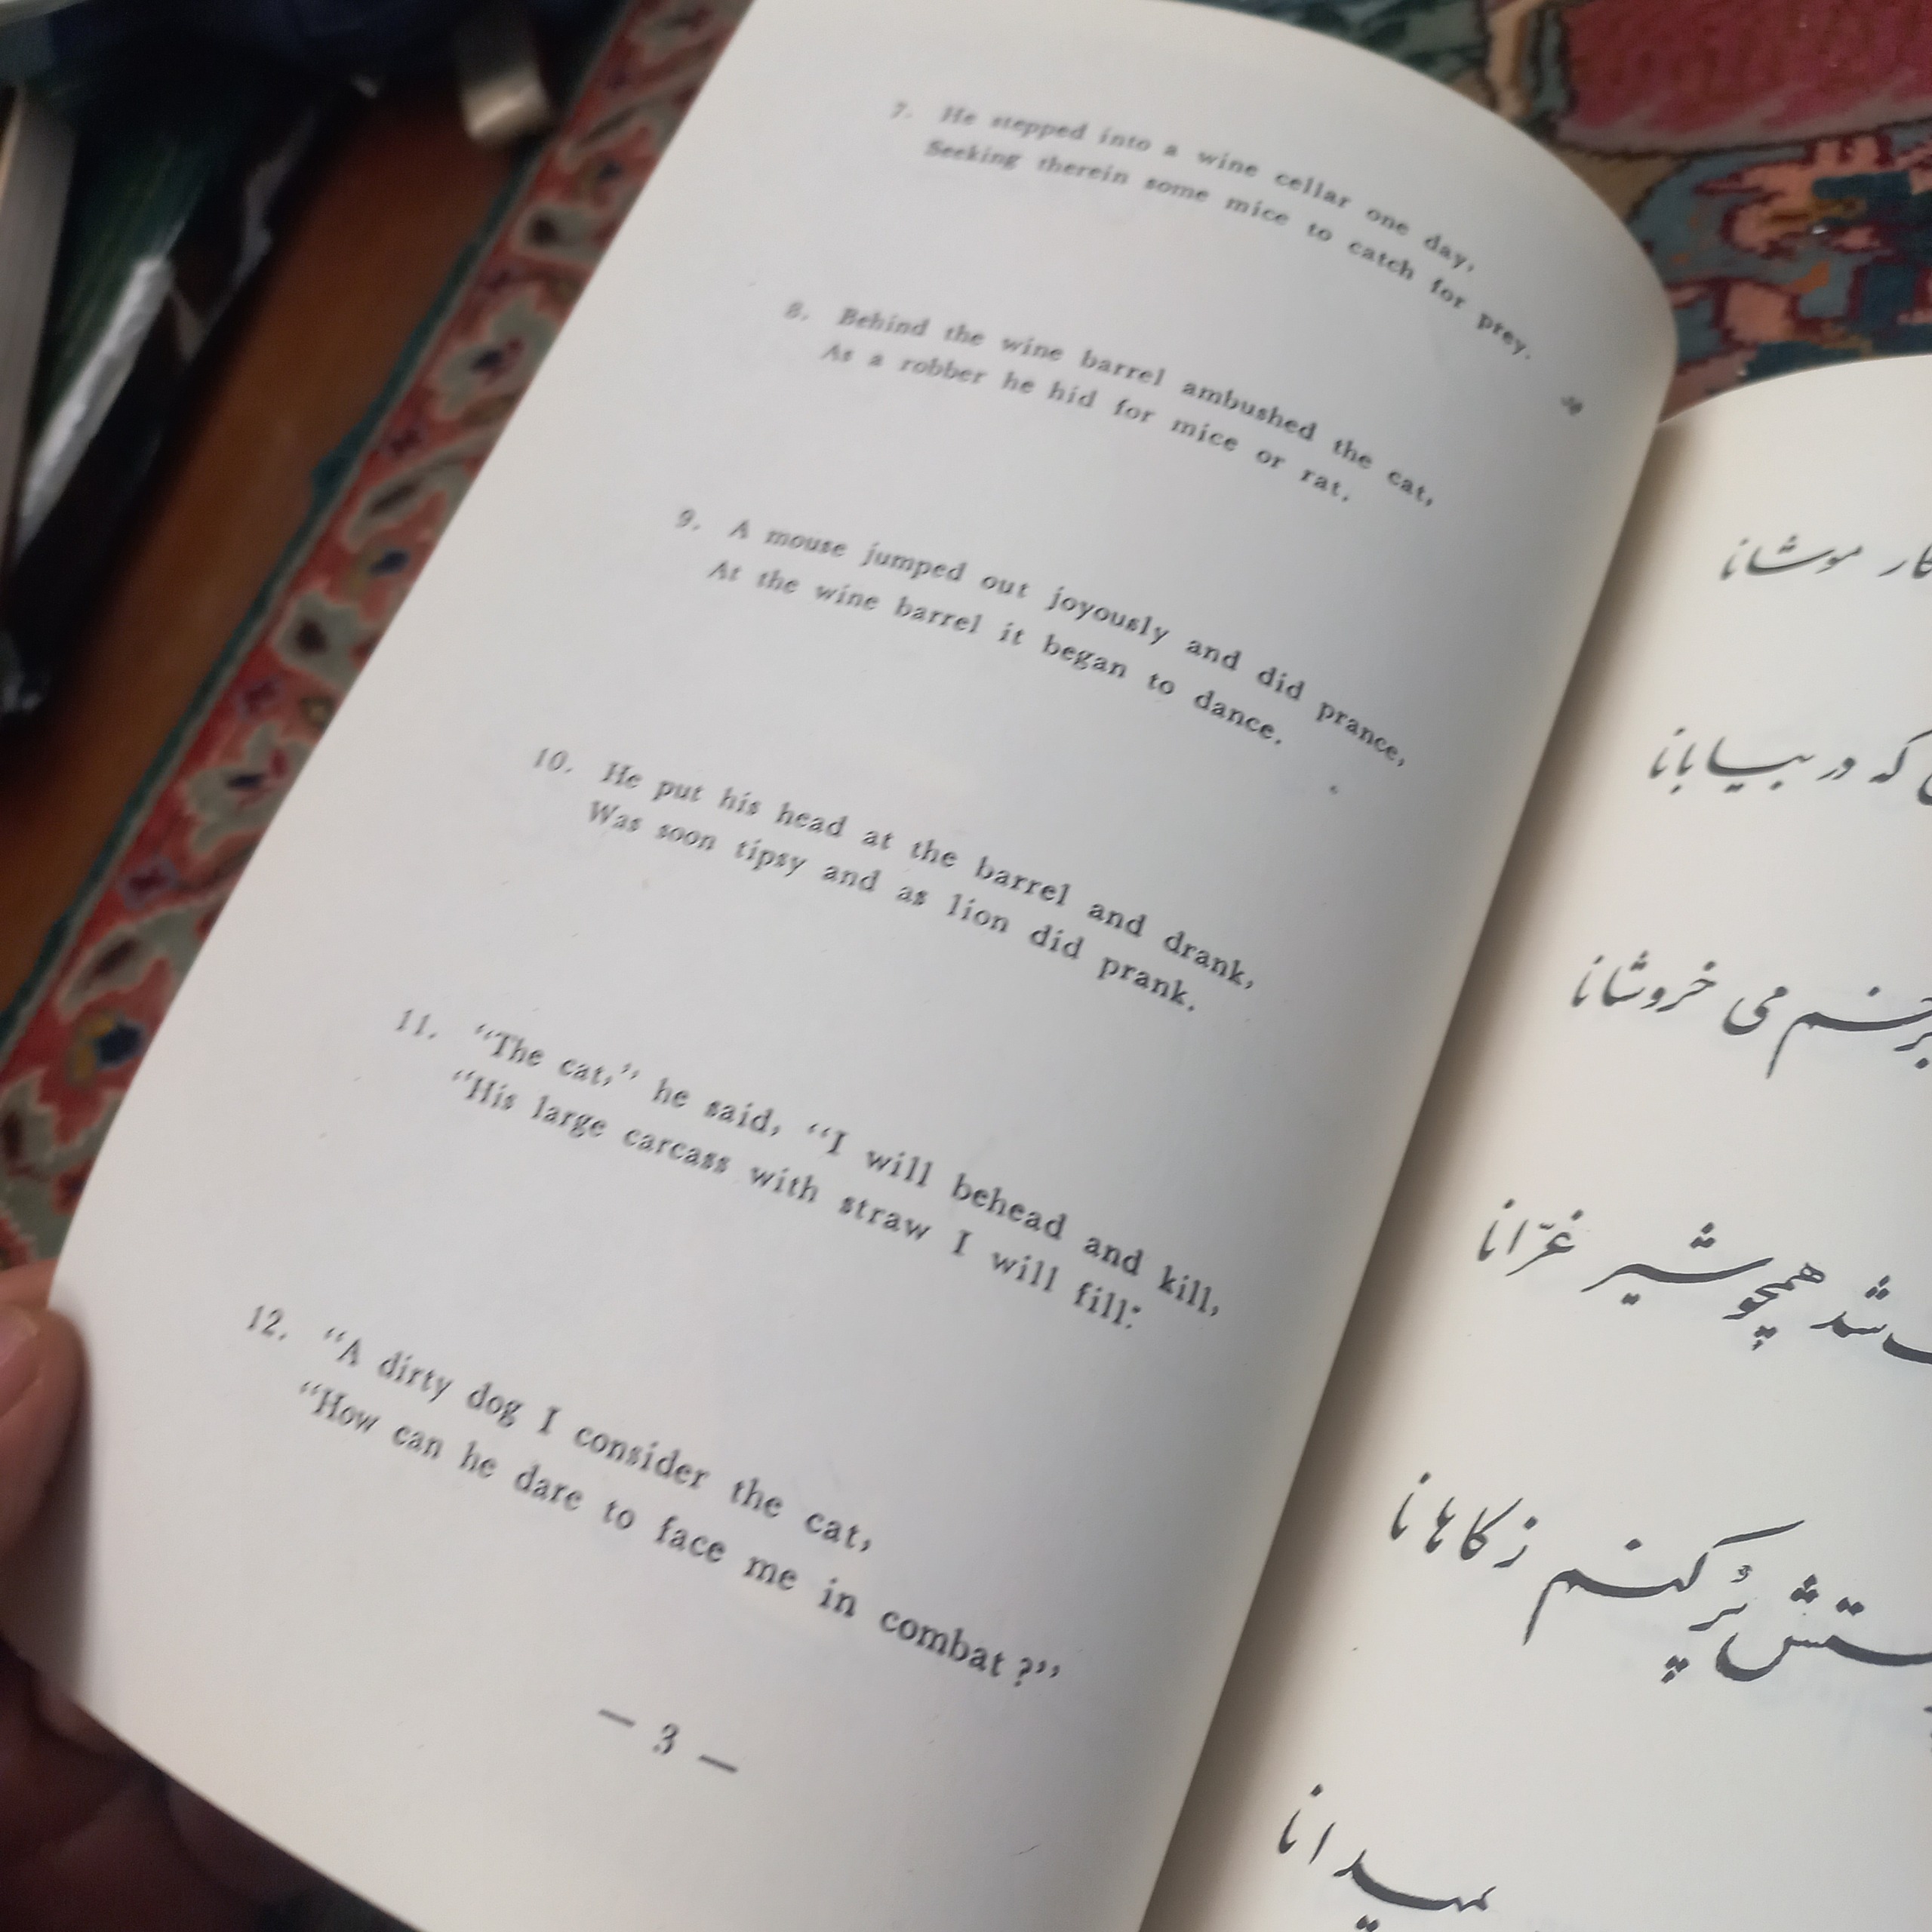 7. He stepped into a wine cellar one day,
Seeking therein some mice to catch for prey.
8. Behind the wine barrel ambushed the cat,
As a robber he hid for mice or rat.
9. A mouse jumped out joyously and did prance,
At the wine barrel it began to dance.
10. He put his head at the barrel and drank,
Was soon tipsy and as lion did prank.
11. “The cat,” he said, “I will behead and kill,
“His large carcass with straw I will fill:
12. “A dirty dog I consider the cat,
“How can he dare to face me in combat?”
— 3 —
موشانا
که در بیابانا
می خروشانا
شد همچو شیر غرّانا
پُر کنم ز کاهانا
میدانا